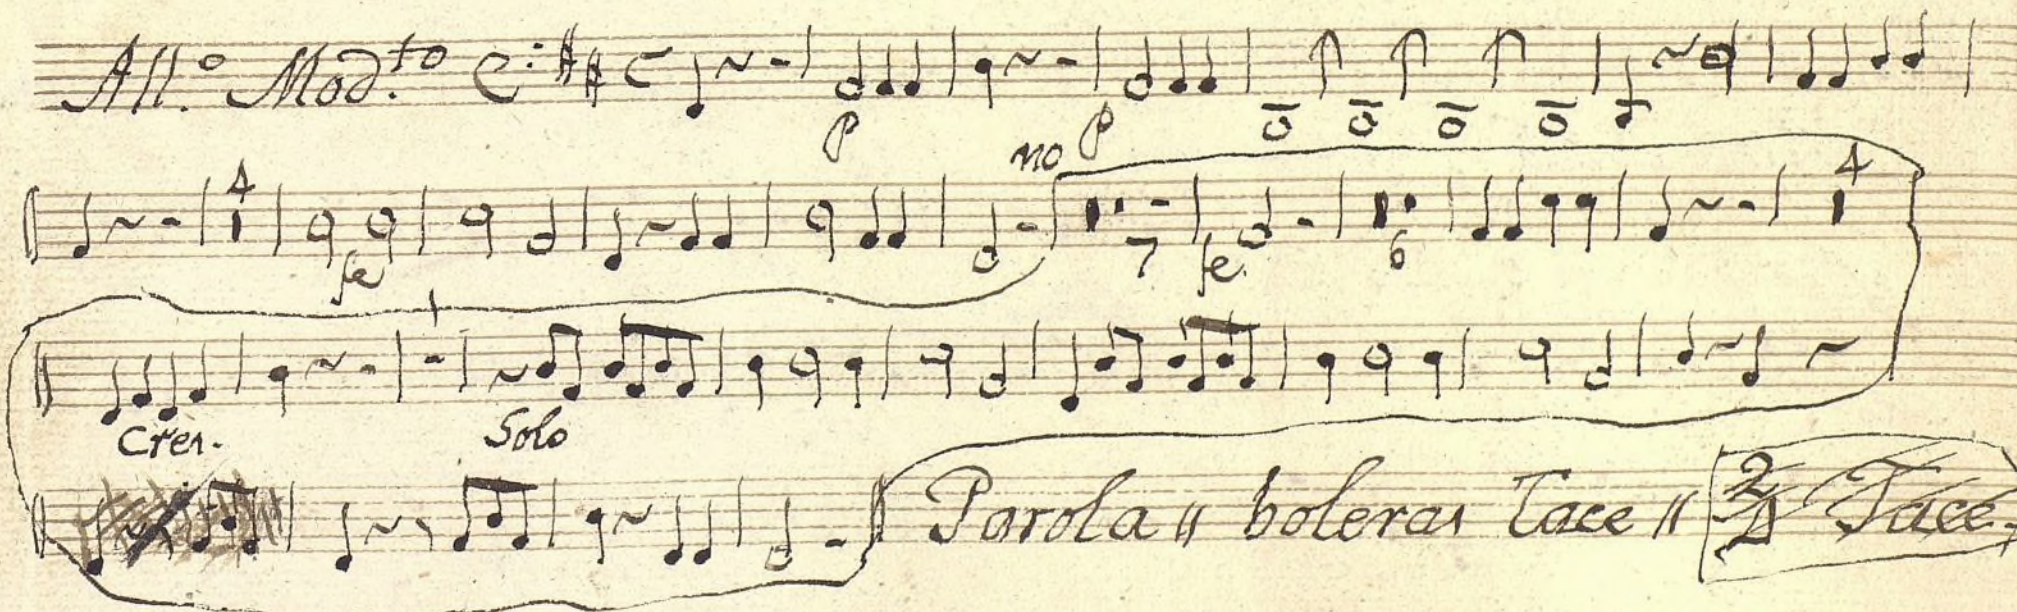 All.º Mod.to C
P P
no
4 fe 7 fe. 6 4
Cres. Solo
Parola boleras Tace 2 Tace